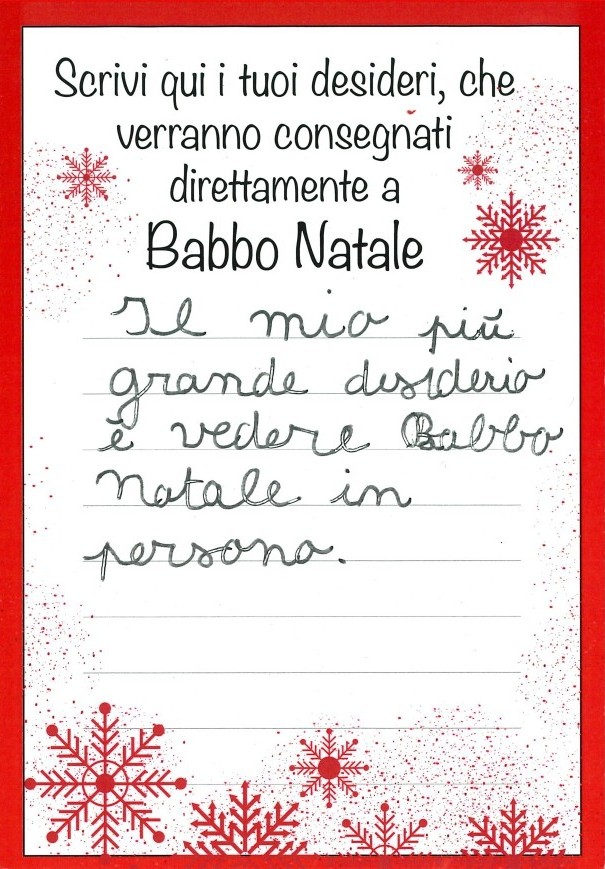 Scrivi qui i tuoi desideri, che
verranno consegnati
direttamente a
Babbo Natale
Il mio più
grande desiderio
è vedere Babbo
Natale in
persona.